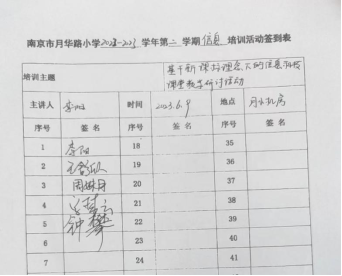 南京市月华路小学2022-2023学年第二学期信息培训活动签到表
培训主题 基于新课标理念下的信息科技
课堂教学研讨活动
主讲人 李阳 时间 2023.6.9 地点 月华机房
序号 签名 序号 签名 序号 签名
1 李阳 18 35
2 19 36
3 周琳月 20 37
4 21 38
5 钟馨 22 39
6 23 40
7 24 41